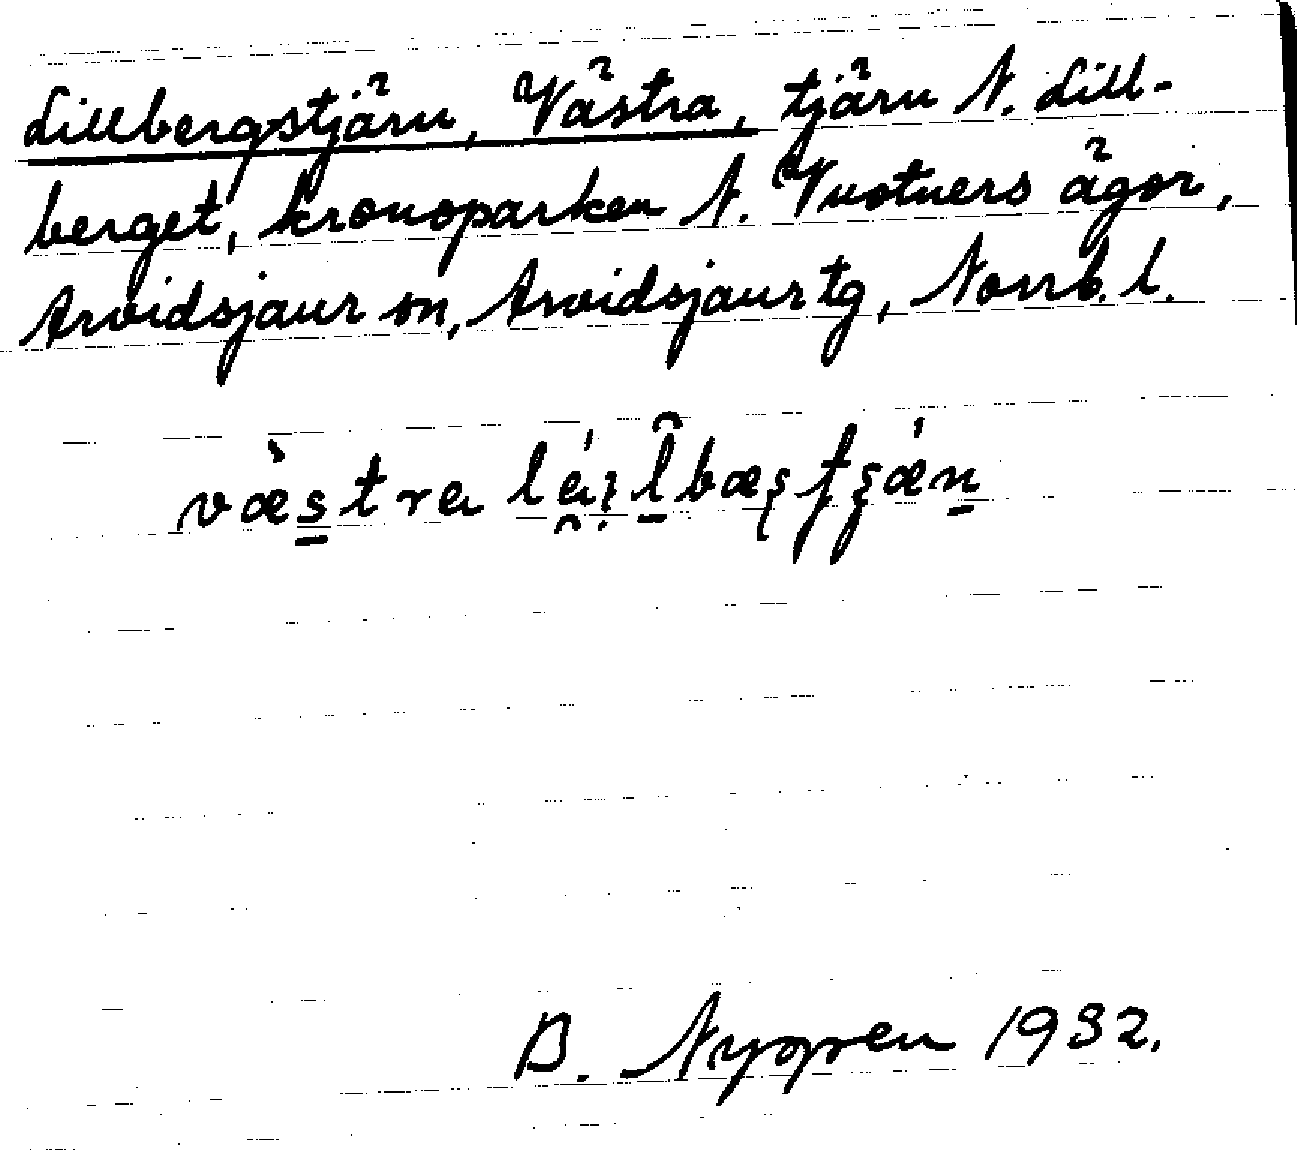 Lillbergstjärn, Västra, tjärn N. Lill-
berget, kronoparken N. Vuotners ägor,
Arvidsjaur sn, Arvidsjaur tg, Norrb. l.
västra
B. Nygren 1932.